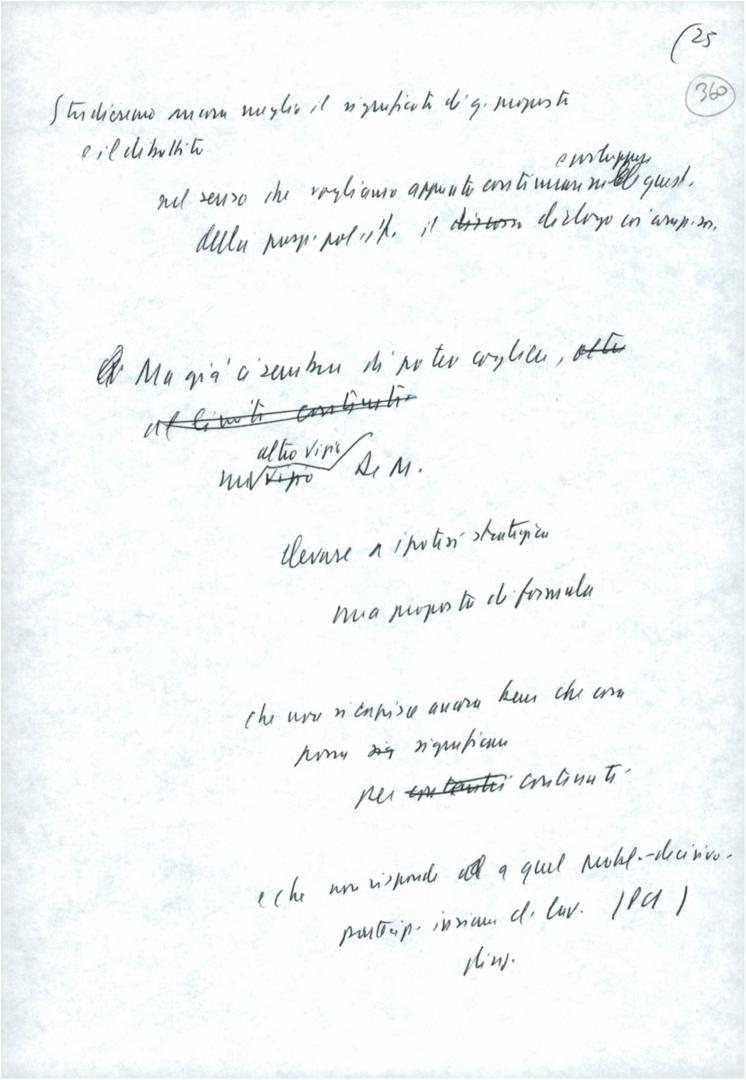 (25
360
Studieremo ancora meglio il significato di q. proposta
e il dibattito
e sviluppare
nel senso che vogliamo appunto continuare quest.
della prosp. polit. il discorso dialogo coi comp. soc.
Ma già ci sembra di poter cogliere, oltre
ai limiti contenuti
altro vizio
un vizio De M.
elevare a ipotesi strategica
una proposta di formula
che non si capisce ancora bene che cosa
possa sig significare
per contenuti contenuti
e che non risponde a quel probl. decisivo
partecip. insieme di lav. (PCI)